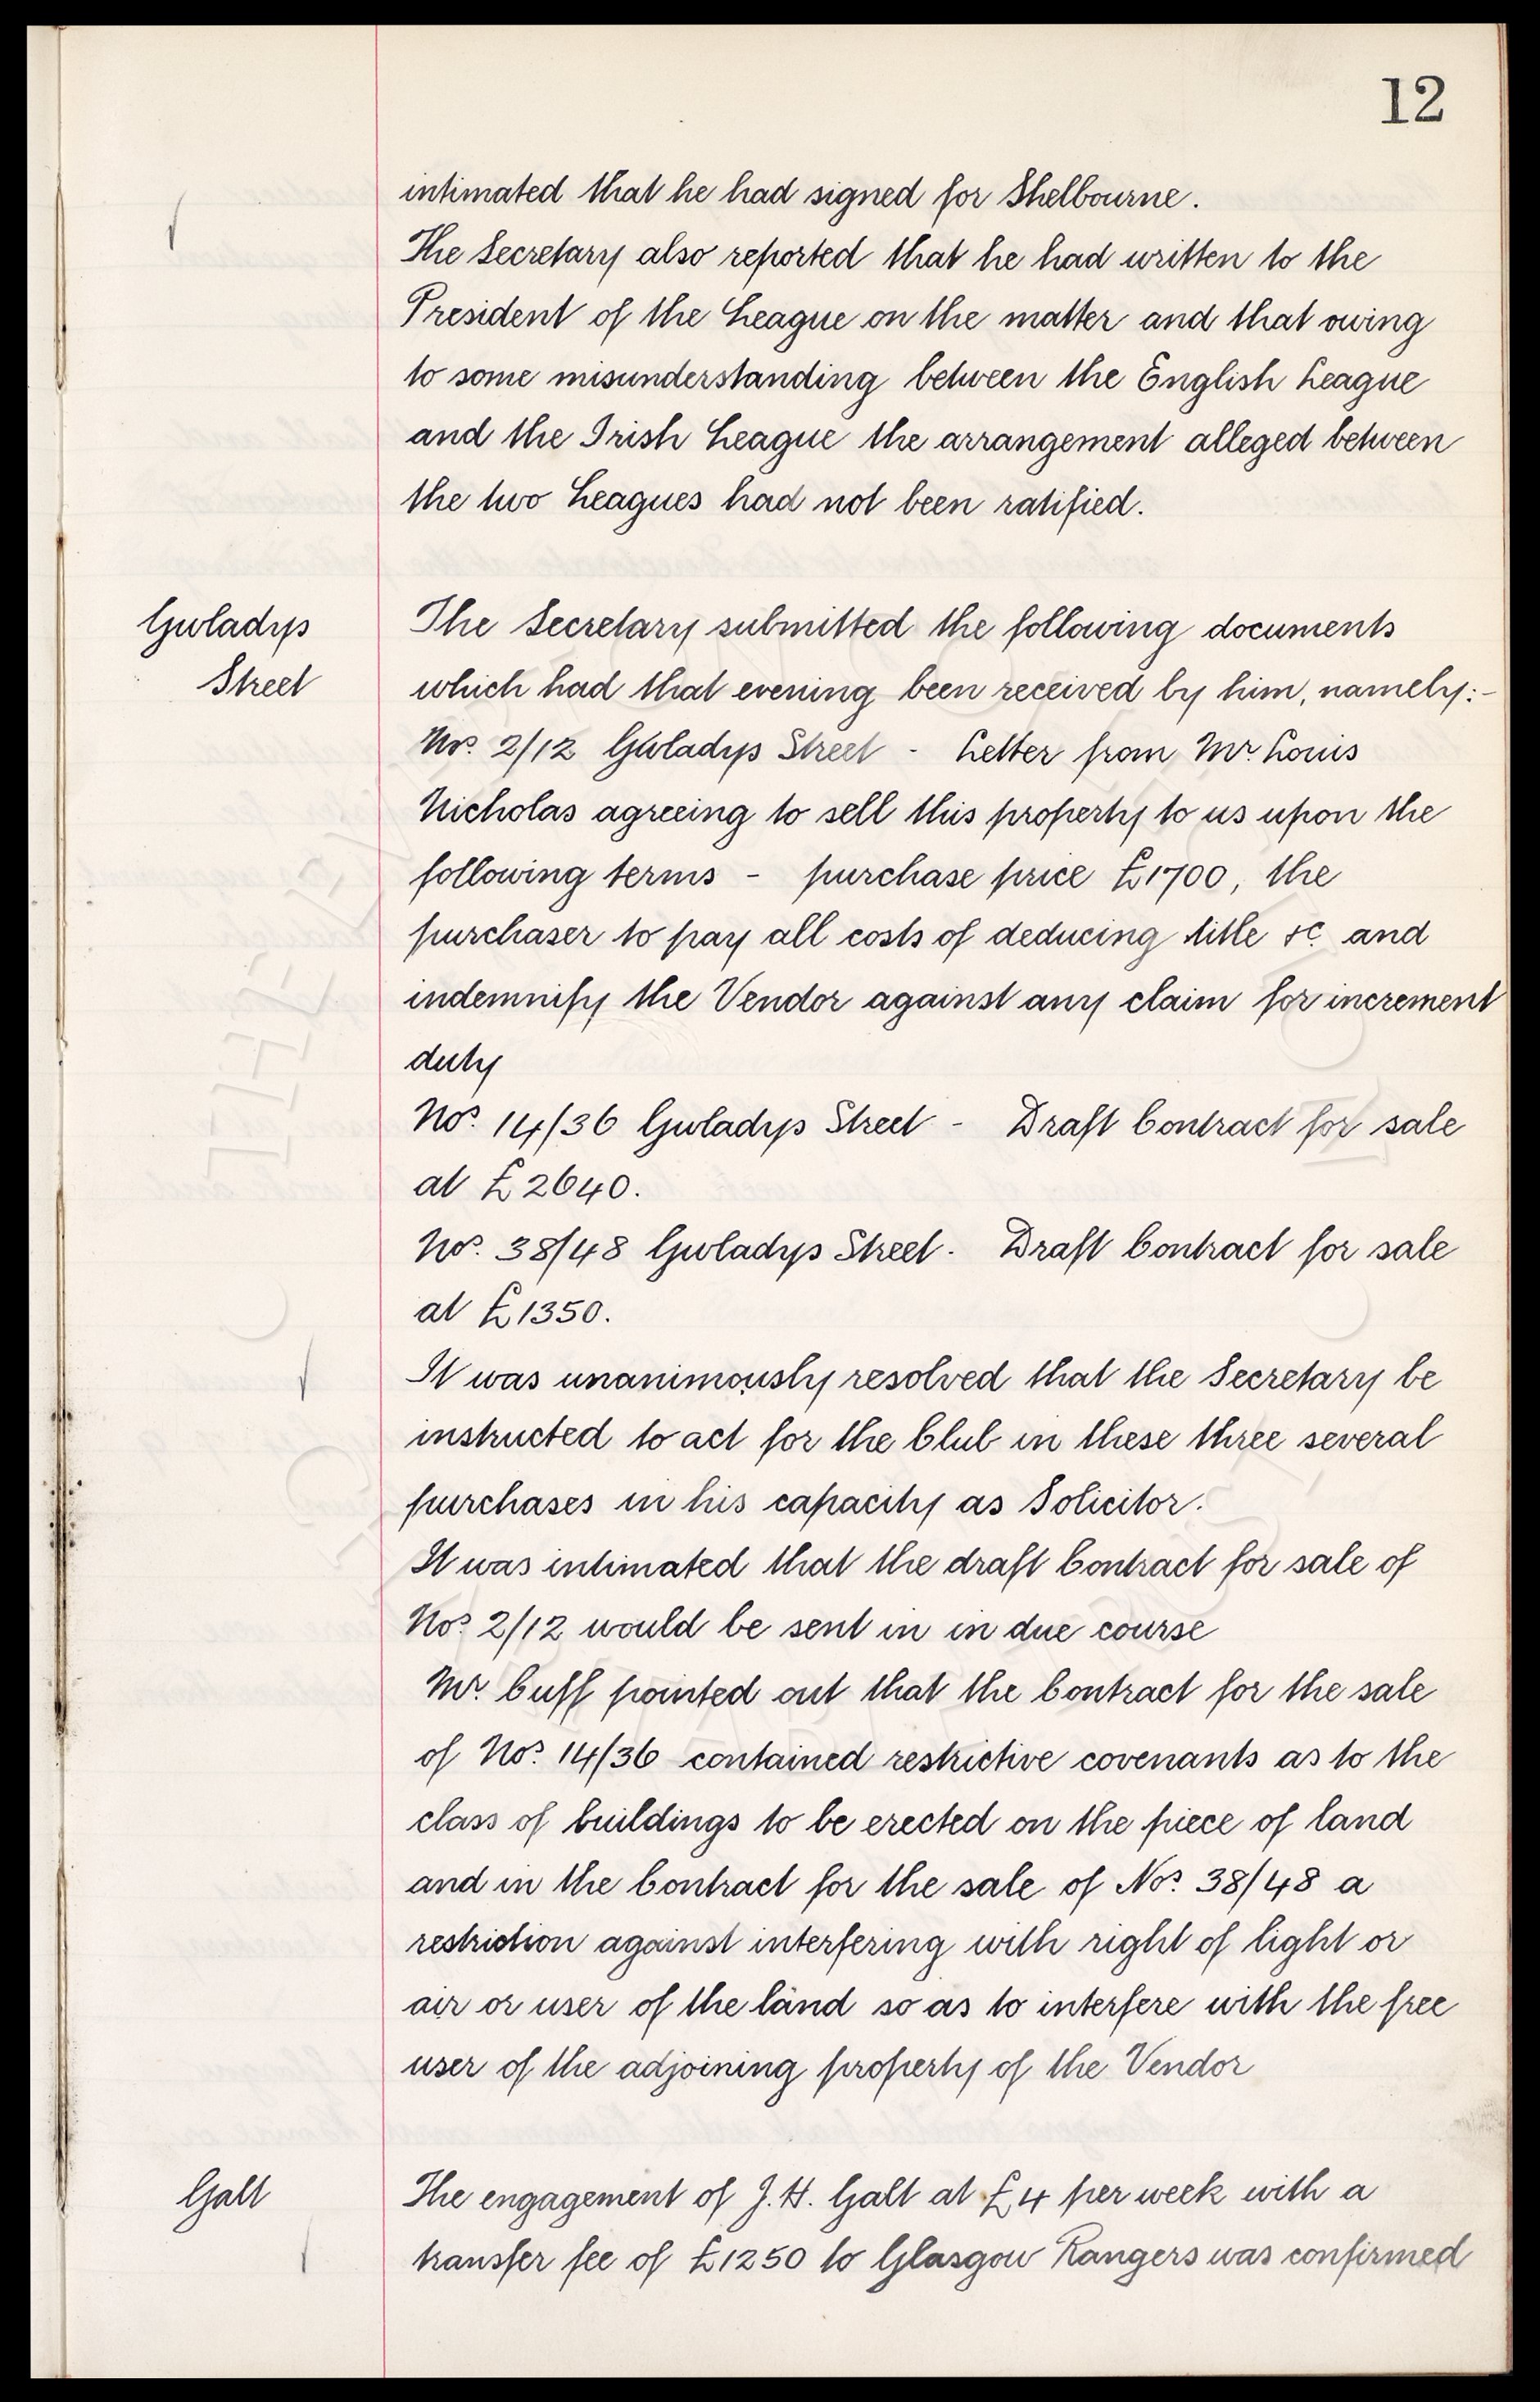 12
intimated that he had signed for Shelbourne.
The Secretary also reported that he had written to the
President of the League on the matter and that owing
to some misunderstanding between the English League
and the Irish League the arrangement alleged between
the two Leagues had not been ratified.
Gwladys
Street
The Secretary submitted the following documents
which had that evening been received by him, namely:-
Nos. 2/12 Gwladys Street - Letter from Mr. Louis
Nicholas agreeing to sell this property to us upon the
following terms - purchase price £1700, the
purchaser to pay all costs of deducing title &c. and
indemnify the Vendor against any claim for increment
duty
Nos. 14/36 Gwladys Street - Draft Contract for sale
at £2640.
Nos. 38/48 Gwladys Street. Draft Contract for sale
at £1350.
It was unanimously resolved that the Secretary be
instructed to act for the Club in these three several
purchases in his capacity as Solicitor.
It was intimated that the draft Contract for sale of
Nos. 2/12 would be sent in in due course
Mr. Cuff pointed out that the Contract for the sale
of Nos. 14/36 contained restrictive covenants as to the
class of buildings to be erected on the piece of land
and in the Contract for the sale of Nos. 38/48 a
restriction against interfering with right of light or
air or user of the land so as to interfere with the free
user of the adjoining property of the Vendor
Galt
The engagement of J. H. Galt at £4 per week with a
transfer fee of £1250 to Glasgow Rangers was confirmed